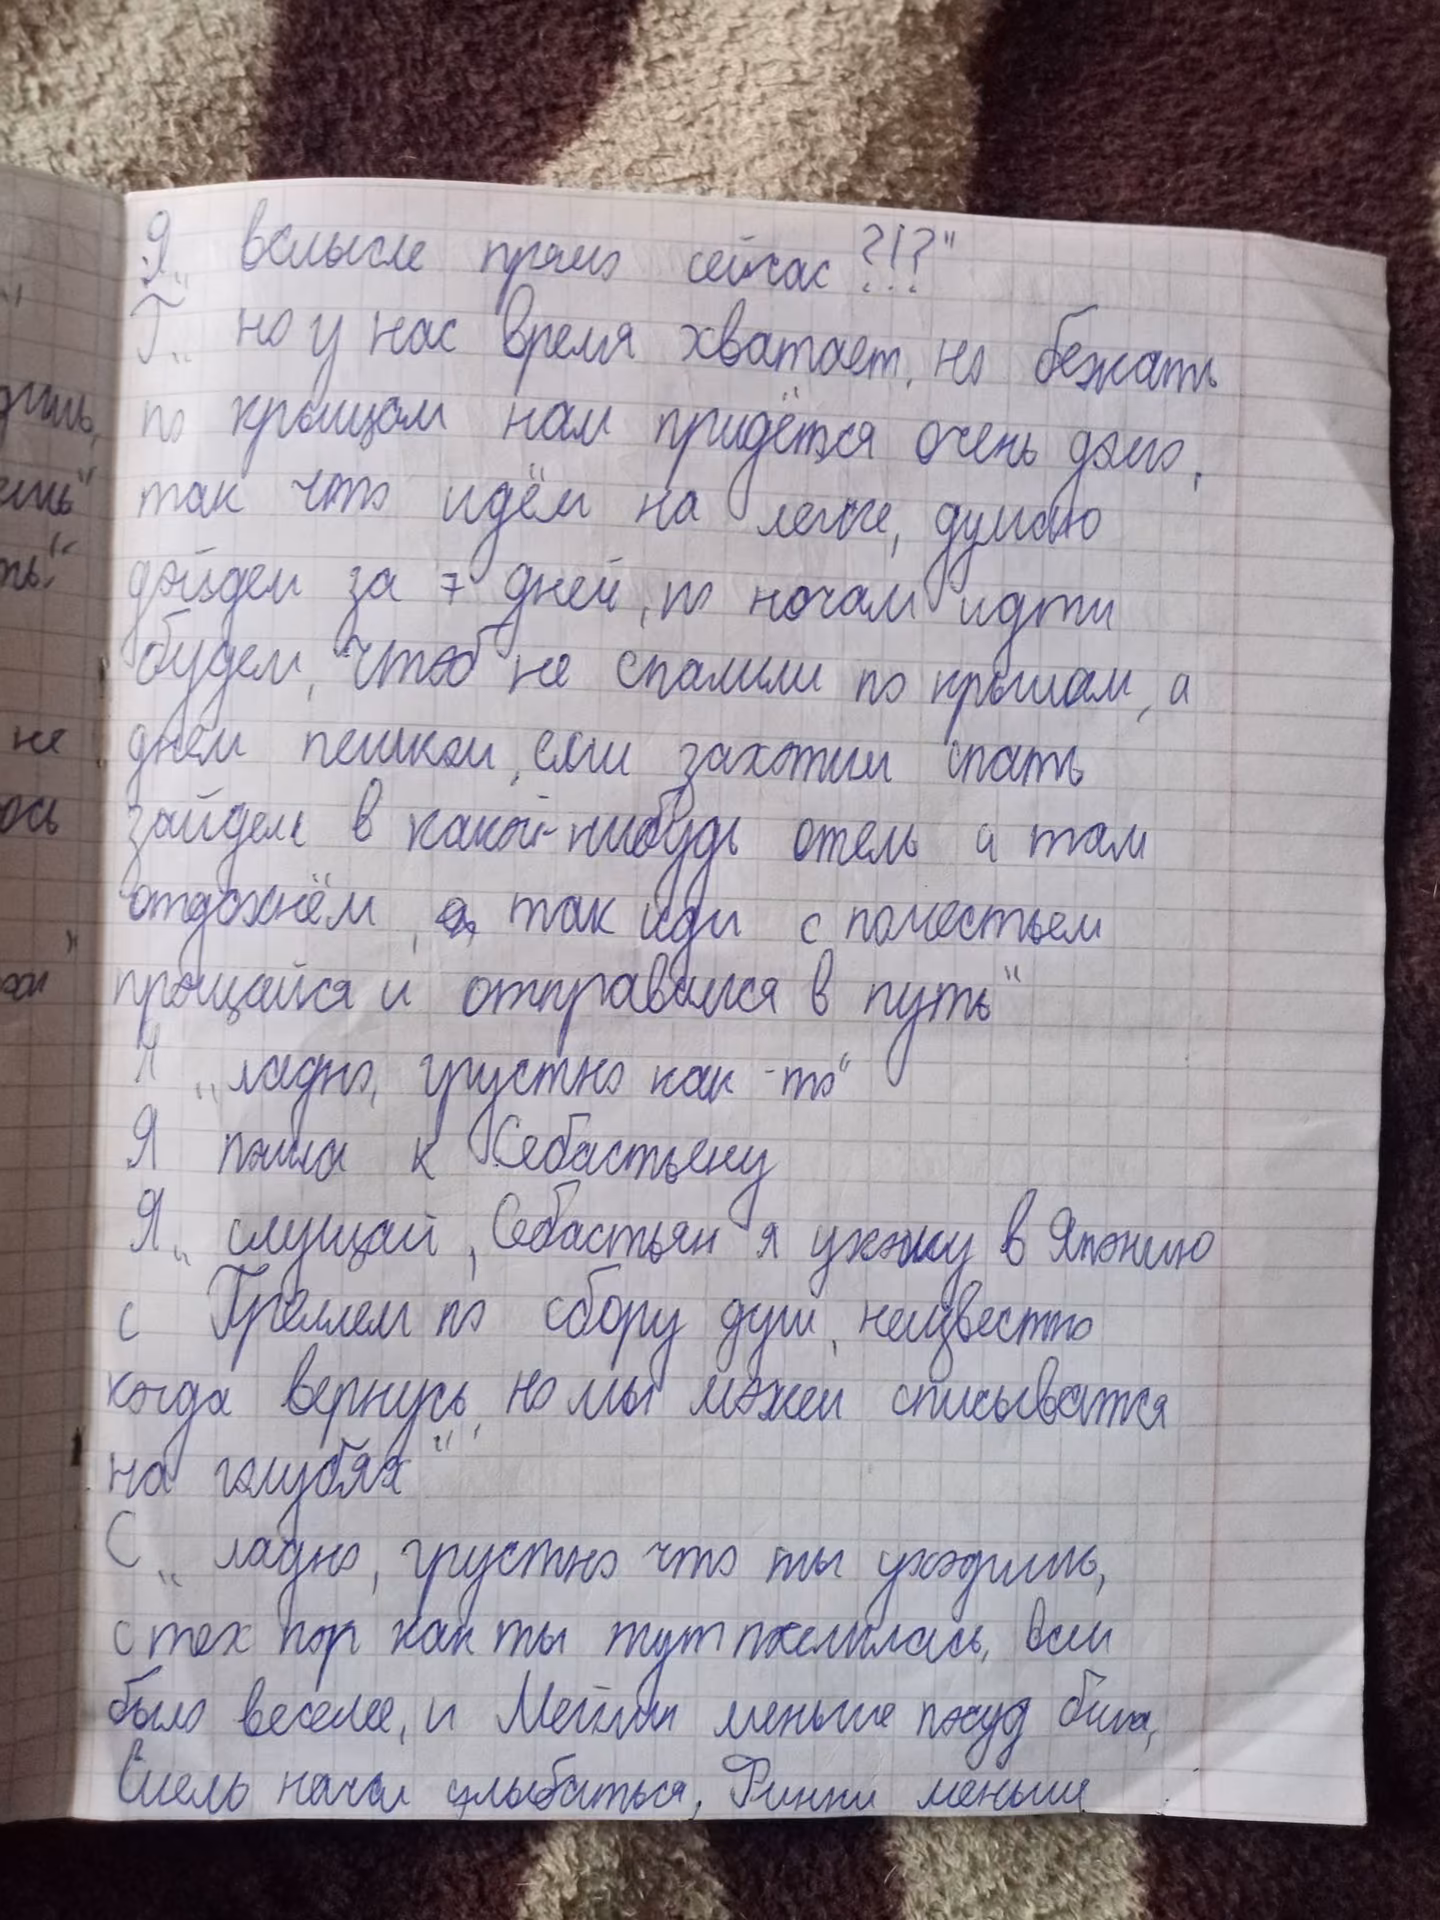 Я „ вслысле прямо сейчас ?!?"
Г „ но у нас время хватает, но бежать
по крыщам нам придётся очень долго,
так что идём на легке, думаю
дойдем за 7 дней, по ночам идти
будем, чтоб не спалили по крышам, а
днём пешком, если захотим спать
зайдем в какой-нибудь отель и там
отдохнём, так иди с поместьем
прощайся и отправимся в путь"
Я „ладно, грустно как-то"
Я пошла к Себастьену
Я „ слущай, Себастьян я ухожу в Японию
с Греллем по сбору душ, неизвестно
когда вернусь, но мы можем списыватся
на голубях"
С „ ладно, грустно что ты уходишь,
с тех пор как ты тут поселилась, всем
было веселее, и Мейлин меньше посуд била,
Сиель начал улыбаться, Финни меньше
дишь,
ешь"
ть."
не
ось